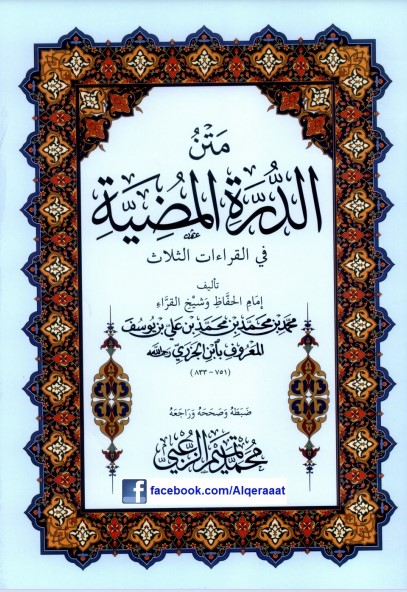 مَتْنُ
الدُّرَّةِ المُضِيَّةِ
في القراءات الثلاث
تأليف
إمَامِ الحُفَّاظِ وَشَيْخِ القُرَّاءِ
محمد بن محمد بن محمد بن علي بن يوسف
المعروف بابن الجزري رحمه الله
(٧٥١ - ٨٣٣)
ضَبَطَهُ وَصَحَّحَهُ وَرَاجَعَهُ
محمد تميم الزعبي
facebook.com/Alqeraaat